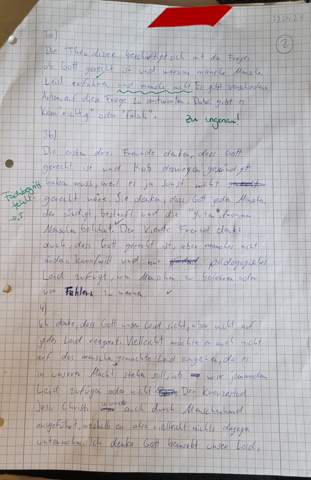 2
3a)
Die Theodizee beschäftigt sich mit der Frage,
ob Gott gerecht ist und warum manche Menschen
Leid erfahren und manche nicht. Es gibt verschiedene
diese Frage zu antworten. Dabei gibt es
kein "richtig" oder "falsch".
zu ungenau!
3b)
Die ersten drei Freunde denken, dass Gott
gerecht ist und Hiob deswegen gesündigt
haben muss, weil es ja sonst nicht
gerecht wäre. Sie denken, dass Gott jeden Menschen
der sündigt, bestraft und die "guten" frommen
Menschen belohnt. Der vierte Freund denkt
auch, dass Gott gerecht ist, aber manches nicht
ändern kann/will und nur pädagogisches
Leid zufügt, um Menschen zu
vor Fehlern zu warnen.
Fachbegriff
fehlt!
4)
Ich denke, dass Gott unser Leid sieht, aber nicht auf
jedes Leid reagiert. Vielleicht möchte er auch nicht
auf das menschengemachte Leid eingehen, da es
in unserer Macht stehen soll, ob wir jemandem
Leid zufügen oder nicht. Der Kreuzestod
Jesu Christi auch durch Menschenhand
ausgeführt, weshalb er also vielleicht nichts dagegen
unternahm. Ich denke Gott unser Leid,